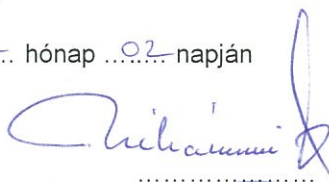 .. hónap ...02... napján